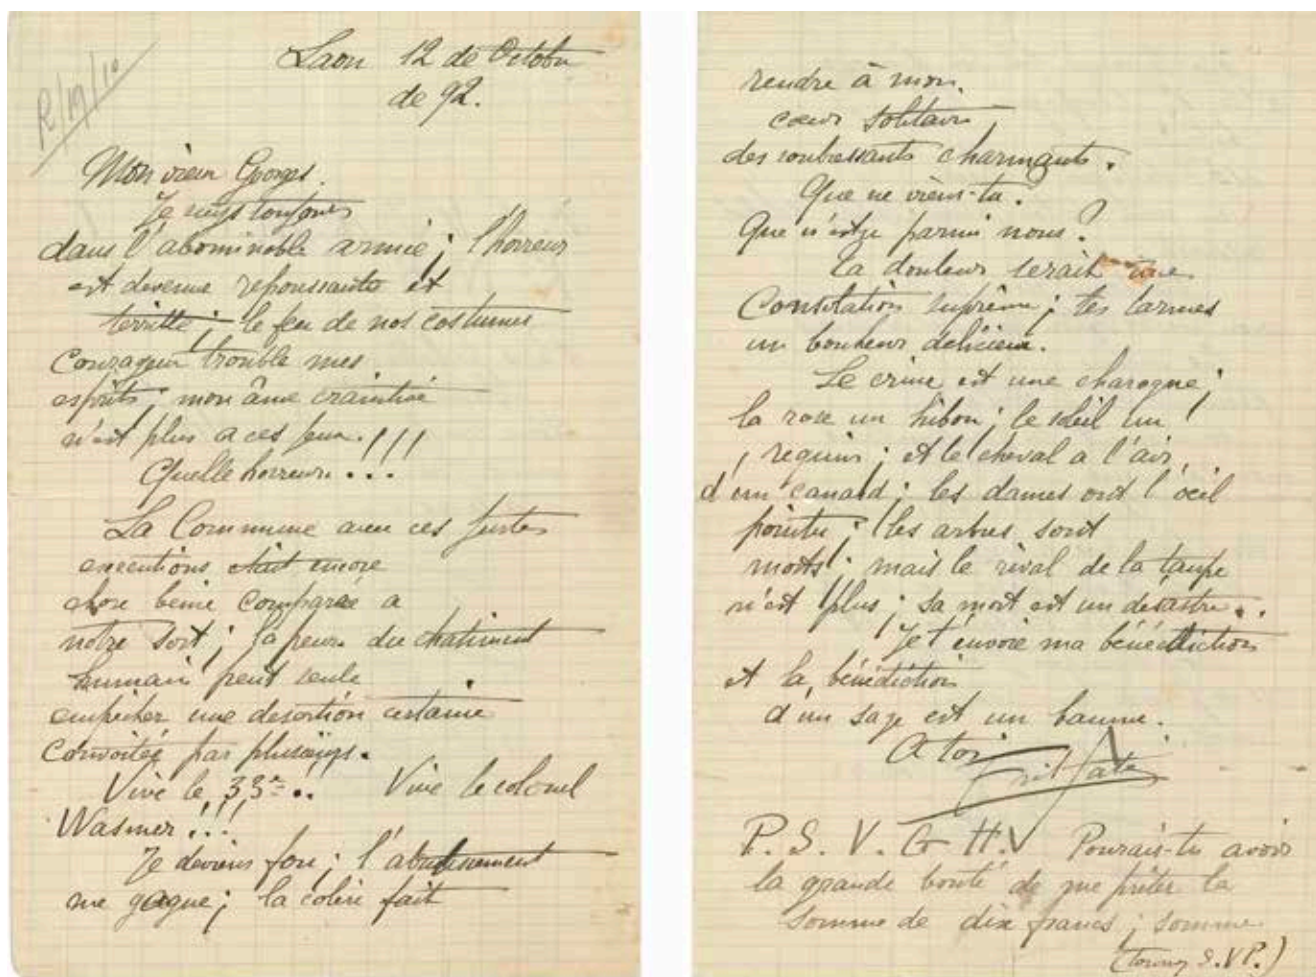 R/19/10
Laon 12 de Octobre
de 92.
Mon vieux Georges.
Je suys toujours
dans l'abominable armée; l'horreur
est devenue repoussante et
terrible; le feu de nos costumes
courageux trouble mes
esprits; mon âme craintive
n'est plus a ces jeux.!!!
Quelle horreur...!
La Commune avec ces justes
executions était encore
chose benie comparée a
notre sort; la peur du chatiment
humain peut seule
empêcher une desertion certaine
convoitée par plusieurs.
Vive le 33e.. Vive le colonel
Wasmer!!!
Je deviens fou; l'abrutissement
me gagne; la colère fait
rendre à mon
coeur solitaire,
des soubressauts charmants.
Que ne viens-tu.
Que n'es-tu parmi nous?
Ta douleur serait une
Consolation suprême; tes larmes
un bonheur délicieux.
Le crime est une charogne;
la rose un hibou; le soleil un
requin; et le cheval a l'air
d'un canard; les dames ont l'oeil
pointu; les arbres sont
morts; mais le rival de la taupe
n'est plus; sa mort est un désastre..
Je t'envoie ma bénédiction
et la bénédiction
d'un sage est un baume.
A toi
P. S. V. G H. V Pourais-tu avoir
la grande bonté de me prêter la
somme de dix francs; somme
(tournez S.V.P.)